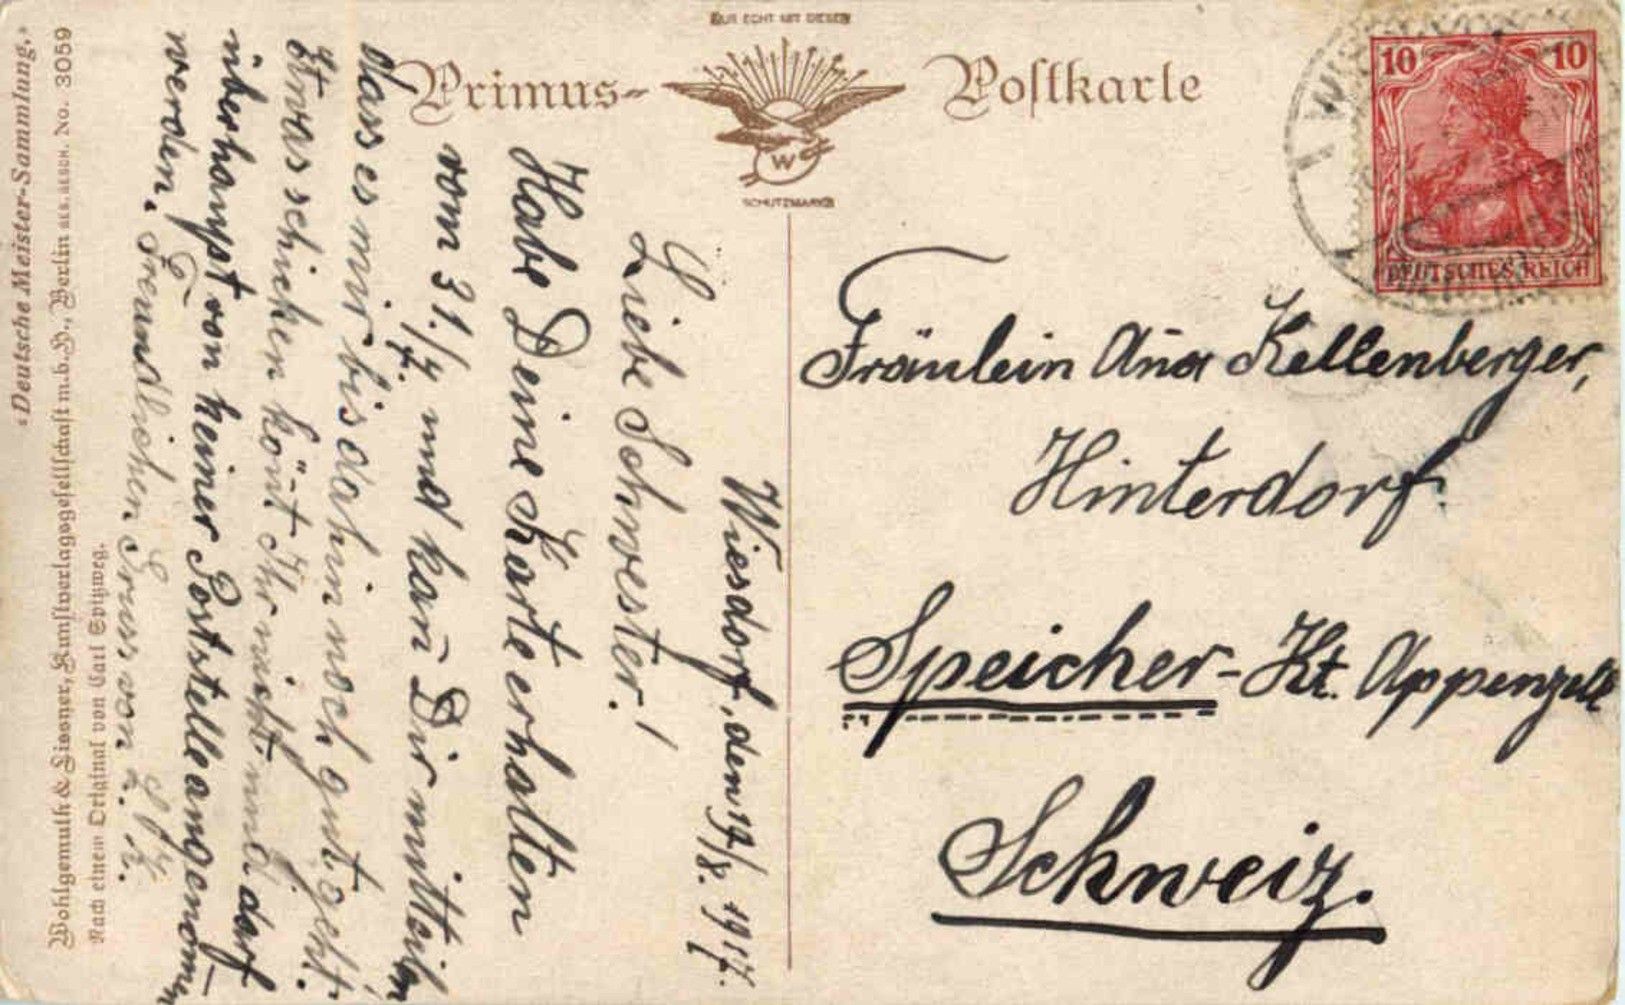 NUR ECHT MIT DIESER
Primus-Postkarte
W
SCHUTZMARKE
10 10
DEUTSCHES REICH
Wiesdorf, den 17/8. 1917.
Liebe Schwester!
Habe Deine Karte erhalten
vom 31./7. und kan̄ Dir mitteilen
dass es mir bis dahin noch gut geht.
Etwas schicken kön̄t Ihr nicht und darf
überhaupt von keiner Poststelle angenom̄en
werden. Freundlichen Gruss von
Fräulein An̄a Kellenberger,
Hinterdorf.
Speicher - Kt. Appenzell
Schweiz.
«Deutsche Meister-Sammlung.»
Wohlgemuth & Lissner, Kunstverlagsgesellschaft m.b.H., Berlin No. 3059
Nach einem Original von Carl Spitzweg.